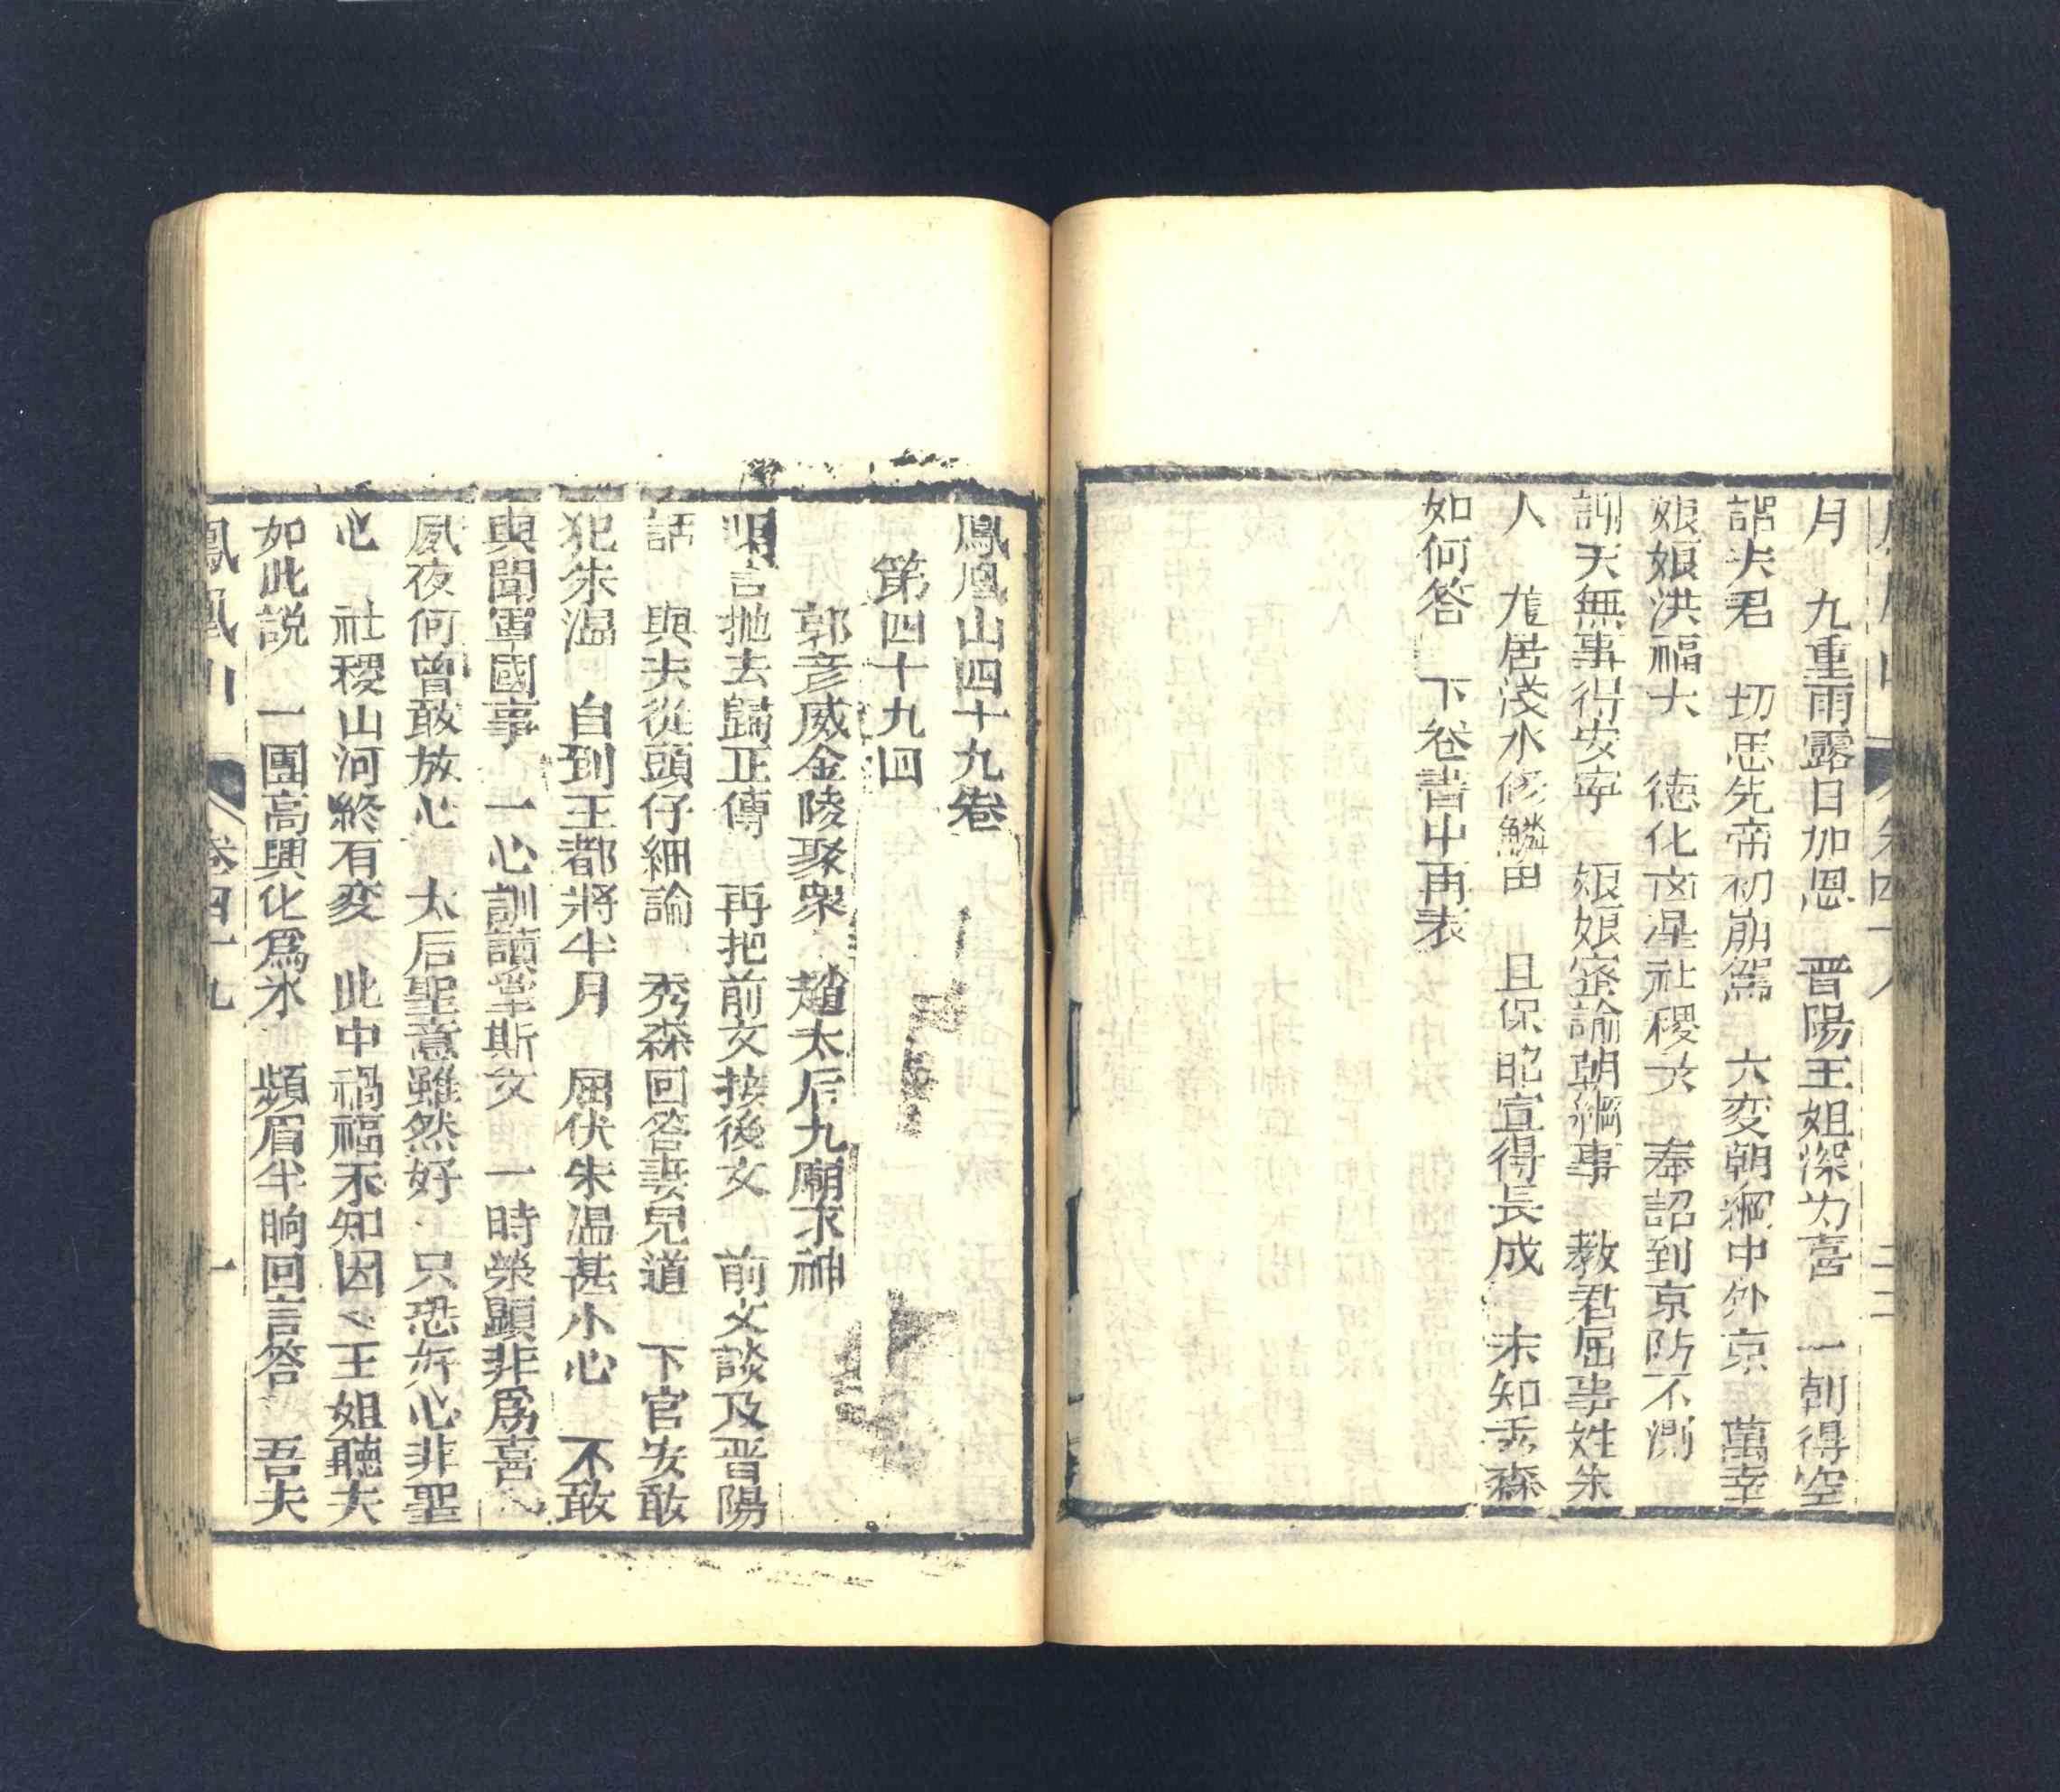 月　九重雨露日加恩　晋陽王姐深为喜　一朝得空
詔夫君　切思先帝初崩駕　六変朝綱中外京　萬幸
娘娘洪福大　徳化　星社稷　　奉詔到京防不測
天無事得安寧　娘娘密諭朝綱事　教君屈事姓朱
人　居淺水修鱗甲　且保昭宣得長成　未知秀森
如何答　下卷書中再表
鳳凰山四十九卷
第四十九囬
郭彦威金陵聚衆　趙太后九廟求神
言抛去歸正傳　再把前文接後文　前文談及晋陽
話　與夫從頭仔細論　秀森回答妻兒道　下官安敢
犯朱温　自到王都將半月　屈伏朱温甚小心　不敢
與聞軍國事　一心訓讀掌斯文　一時榮顯非爲喜
夙夜何曾敢放心　太后聖意雖然好　只恐奸心非聖
心　社稷山河終有変　此中禍福不知因　王姐聽夫
如此説　一團高興化爲氷　頻眉半晌回言答　吾夫
鳳凰山　卷四十九　一